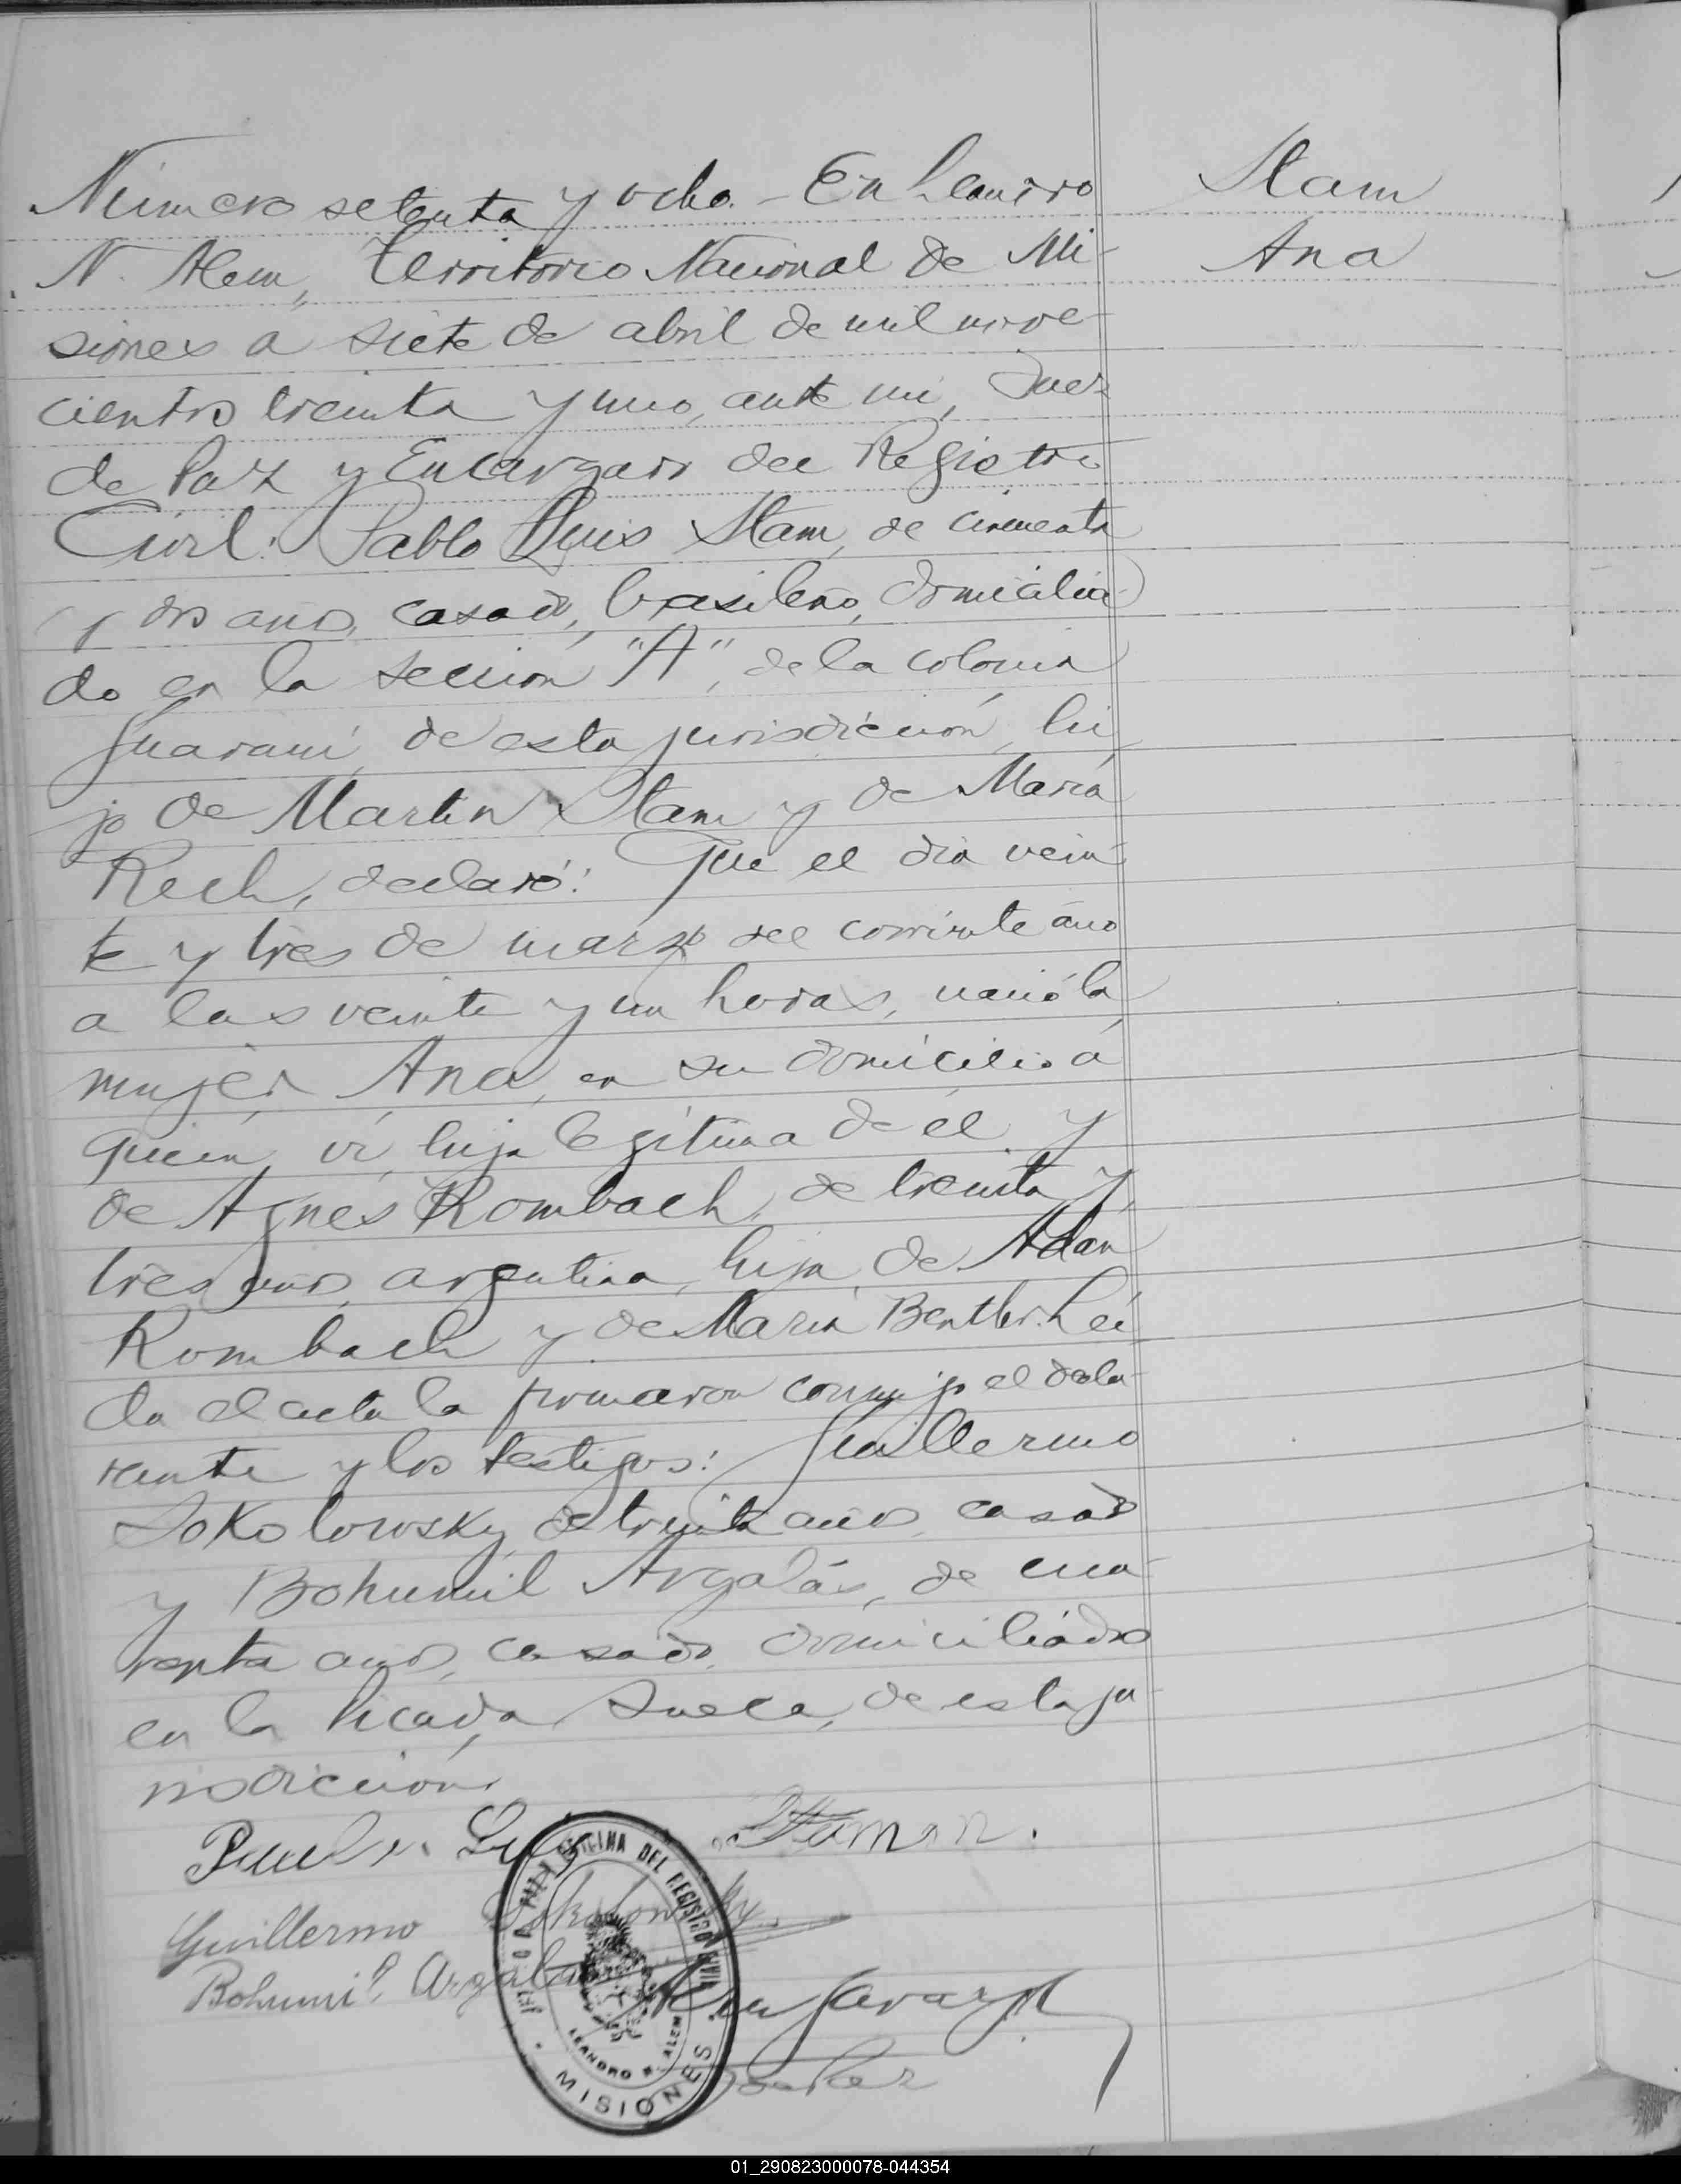 Número setenta y ocho. - En Leandro
N. Alem, Territorio Nacional de Mi-
siones a siete de abril de mil nove-
cientos treinta y uno, ante mi, Juez
de Paz y Encargado del Registro
Civil: Pablo Luis Stam, de cincuenta
y dos años, casado, brasileño, domicilia-
do en la sección "A", de la colonia
Guaraní, de esta jurisdicción, hi-
jo de Martin Stam y de María
Rech, declaró: Que el día vein-
te y tres de marzo del corriente año
a las veinte y un horas, nació la
mujer Ana, en su domicilio a
quien ví, hija legítima de él y
de Agnes Rombach, de treinta y
tres años, argentina, hija de Adan
Rombach y de María Bentler. Leí-
da el acta la firmaron conmigo el decla-
rante y los testigos: Guillermo
Sokolowsky, de treinta años, casado
y Bohumil Argalás, de cua-
renta años, casado, domiciliados
en la Picada Sueca, de esta ju-
risdicción.
Stam
Ana
Guillermo Sokolowsky
Bohumil Argalas
OFICINA DEL REGISTRO CIVIL
LEANDRO N. ALEM
MISIONES
01_290823000078-044354